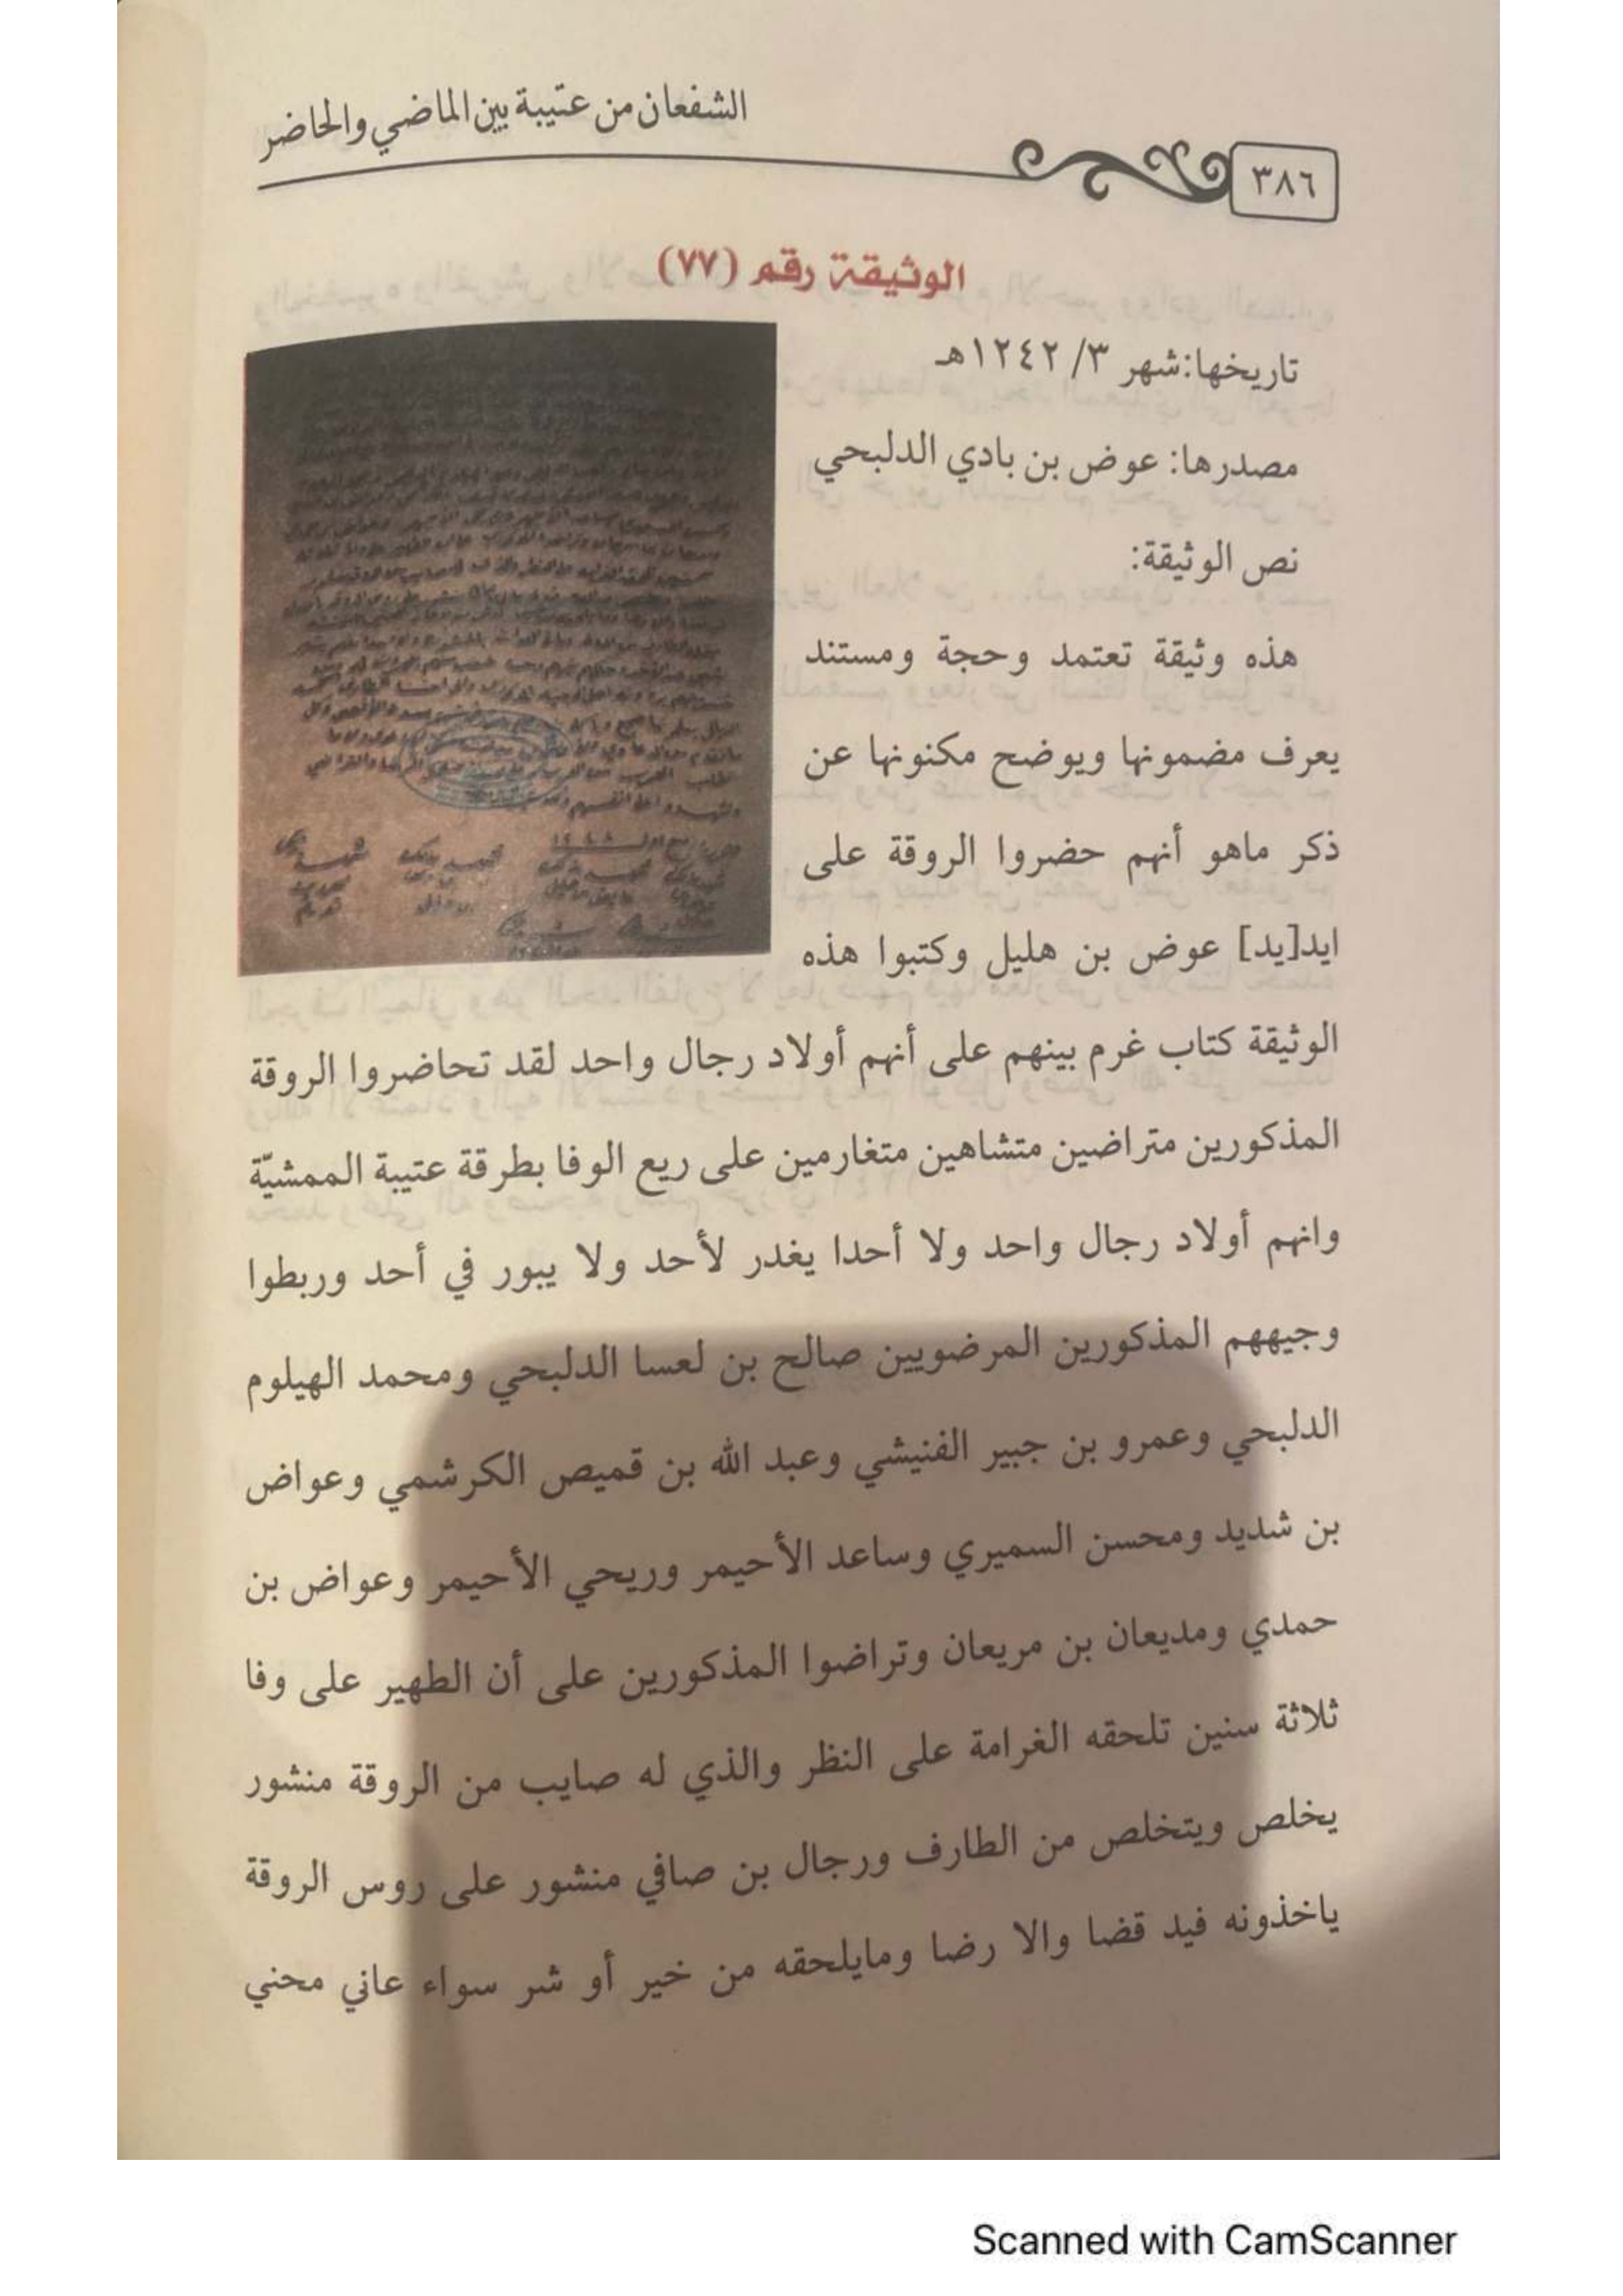 الشفعان من عتيبة بين الماضي والحاضر
٣٨٦
الوثيقة رقم (٧٧)
تاريخها: شهر ٣/ ١٢٤٢هـ
مصدرها: عوض بن بادي الدلبحي
نص الوثيقة:
هذه وثيقة تعتمد وحجة ومستند
يعرف مضمونها ويوضح مكنونها عن
ذكر ماهو أنهم حضروا الروقة على
ايد[يد] عوض بن هليل وكتبوا هذه
الوثيقة كتاب غرم بينهم على أنهم أولاد رجال واحد لقد تحاضروا الروقة
المذكورين متراضين متشاهين متغارمين على ريع الوفا بطرقة عتيبة الممشيّة
وانهم أولاد رجال واحد ولا أحدا يغدر لأحد ولا يبور في أحد وربطوا
وجيههم المذكورين المرضويين صالح بن لعسا الدلبحي ومحمد الهيلوم
الدلبحي وعمرو بن جبير الفنيشي وعبد الله بن قميص الكرشمي وعواض
بن شديد ومحسن السميري وساعد الأحيمر وريحي الأحيمر وعواض بن
حمدي ومديعان بن مريعان وتراضوا المذكورين على أن الطهير على وفا
ثلاثة سنين تلحقه الغرامة على النظر والذي له صايب من الروقة منشور
يخلص ويتخلص من الطارف ورجال بن صافي منشور على روس الروقة
ياخذونه فيد قضا والا رضا ومايلحقه من خير أو شر سواء عاني محني
Scanned with CamScanner